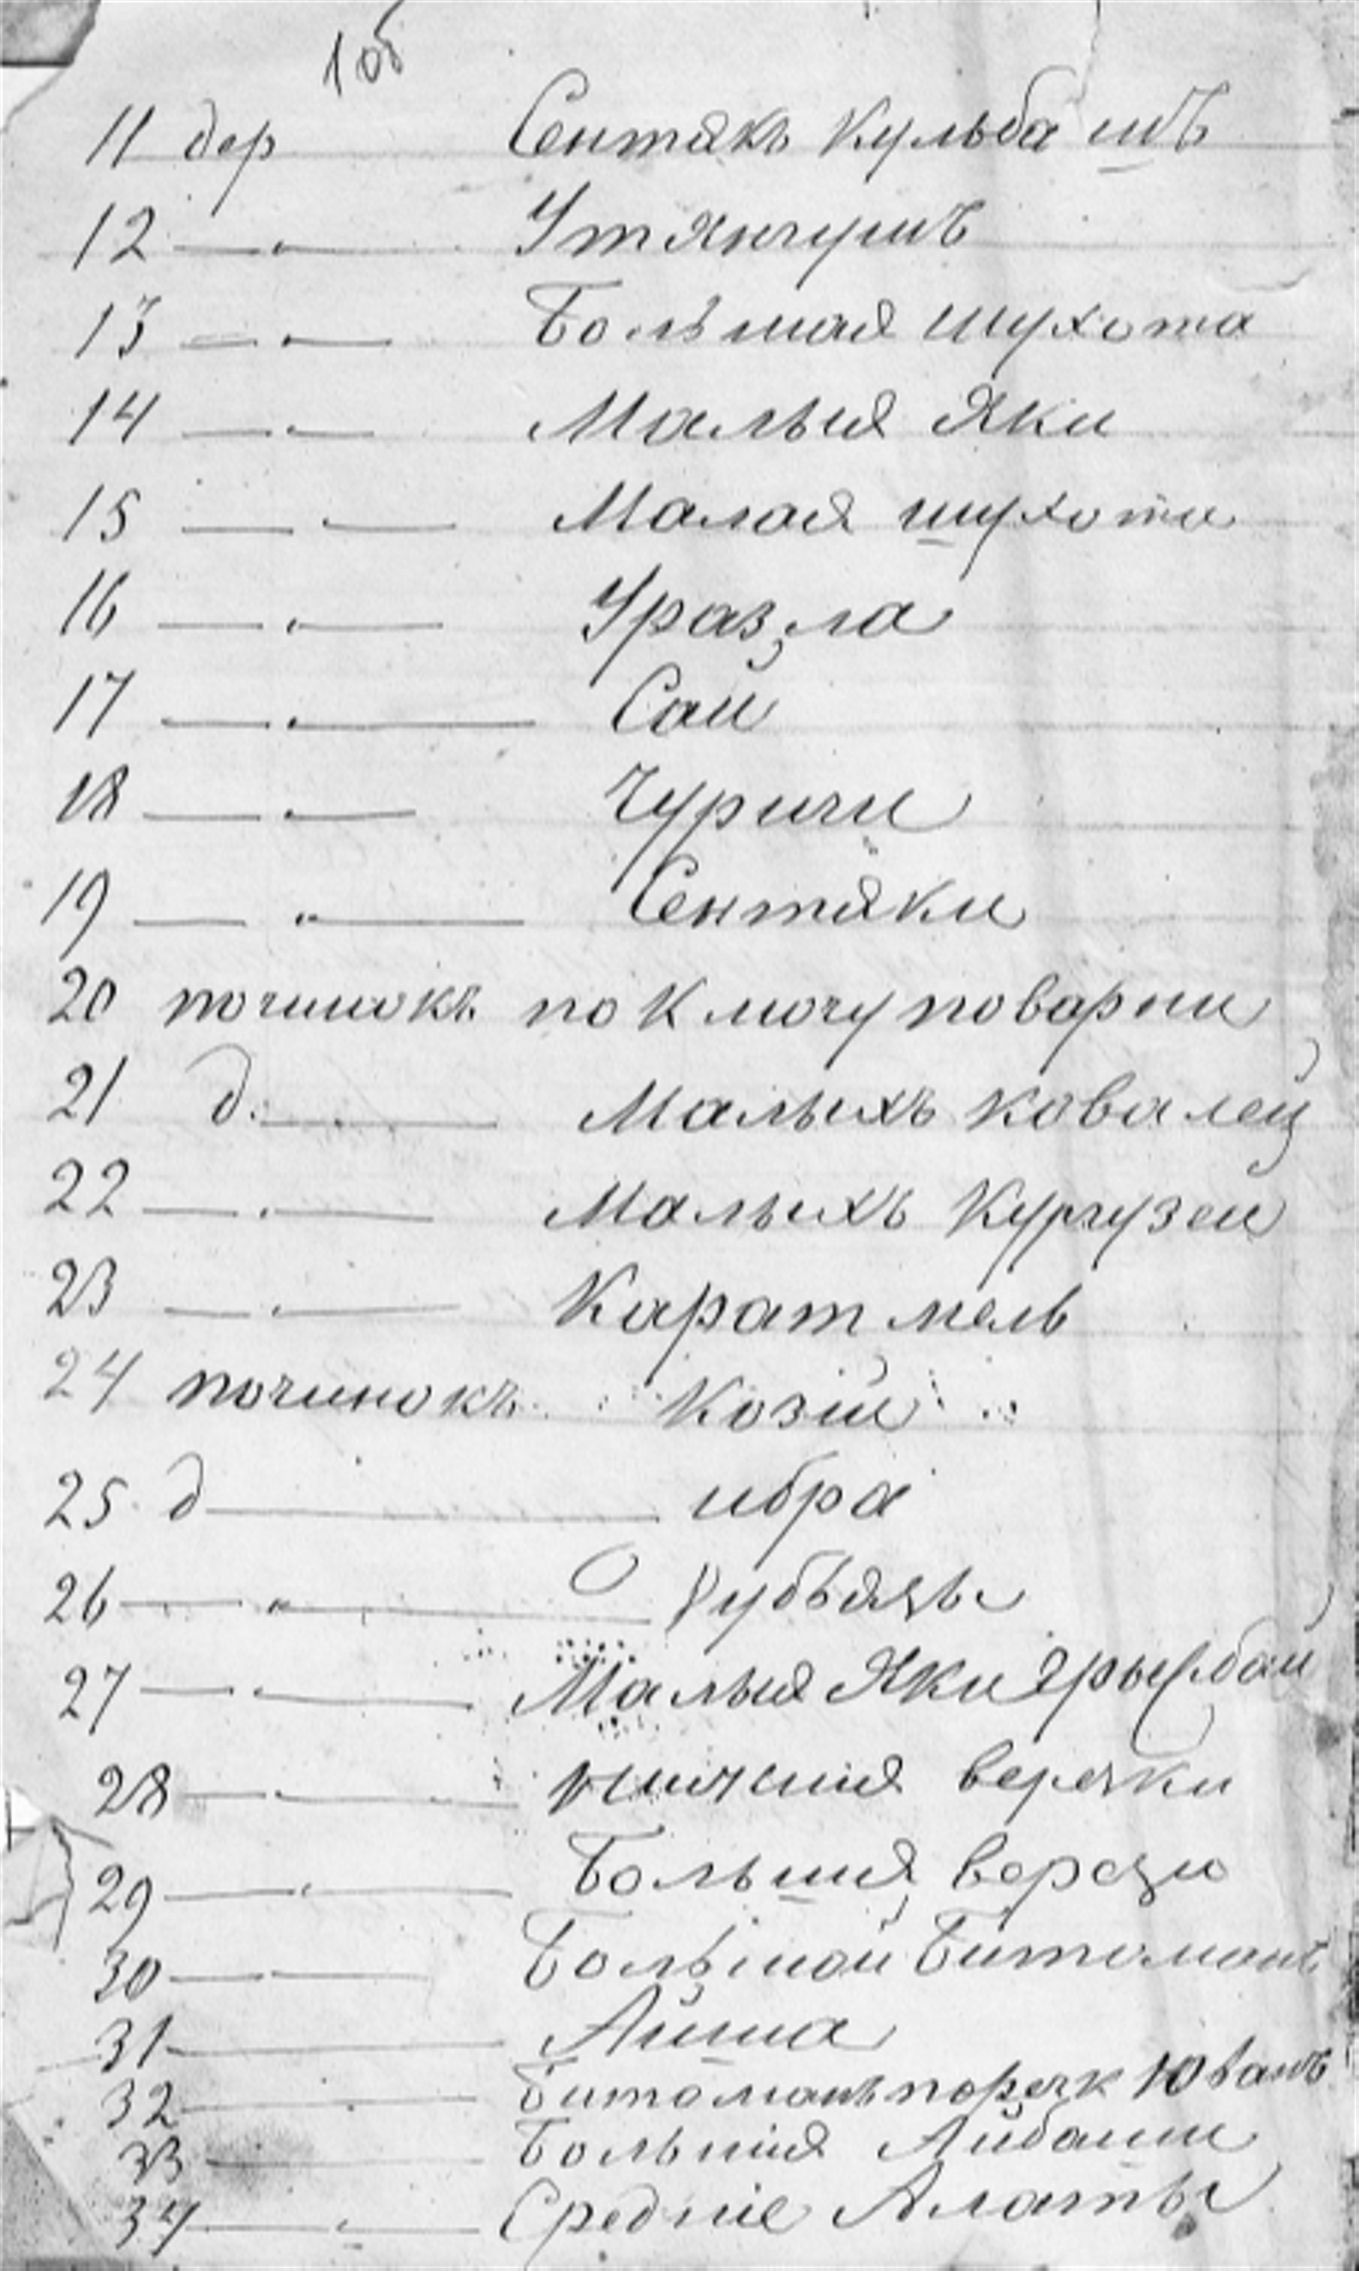 10б
11 дер Сентякъ Кульба шъ
12 — " — Утянгушъ
13 — " — Большая шухота
14 — " — Малыя Яки
15 — " — Малая шухота
16 — " — Уразла
17 — " — Сай
18 — " — Чуричи
19 — " — Сентяки
20 починокъ по Ключу поварни
21 д. — Малыхъ ковалей
22 — " — Малыхъ Кургузей
23 — " — Карат мель
24 починокъ Козій
25 д — ибра
26 — " — О
27 — " — Малыя Яки
28 — " — нижнія верески
29 — " — Большія
30 — " — Большой Битоманъ
31 — Айша
32 — Битоманъ по речк Ювашъ
33 — Большія Айбаши
34 — " — Средніе Алаты